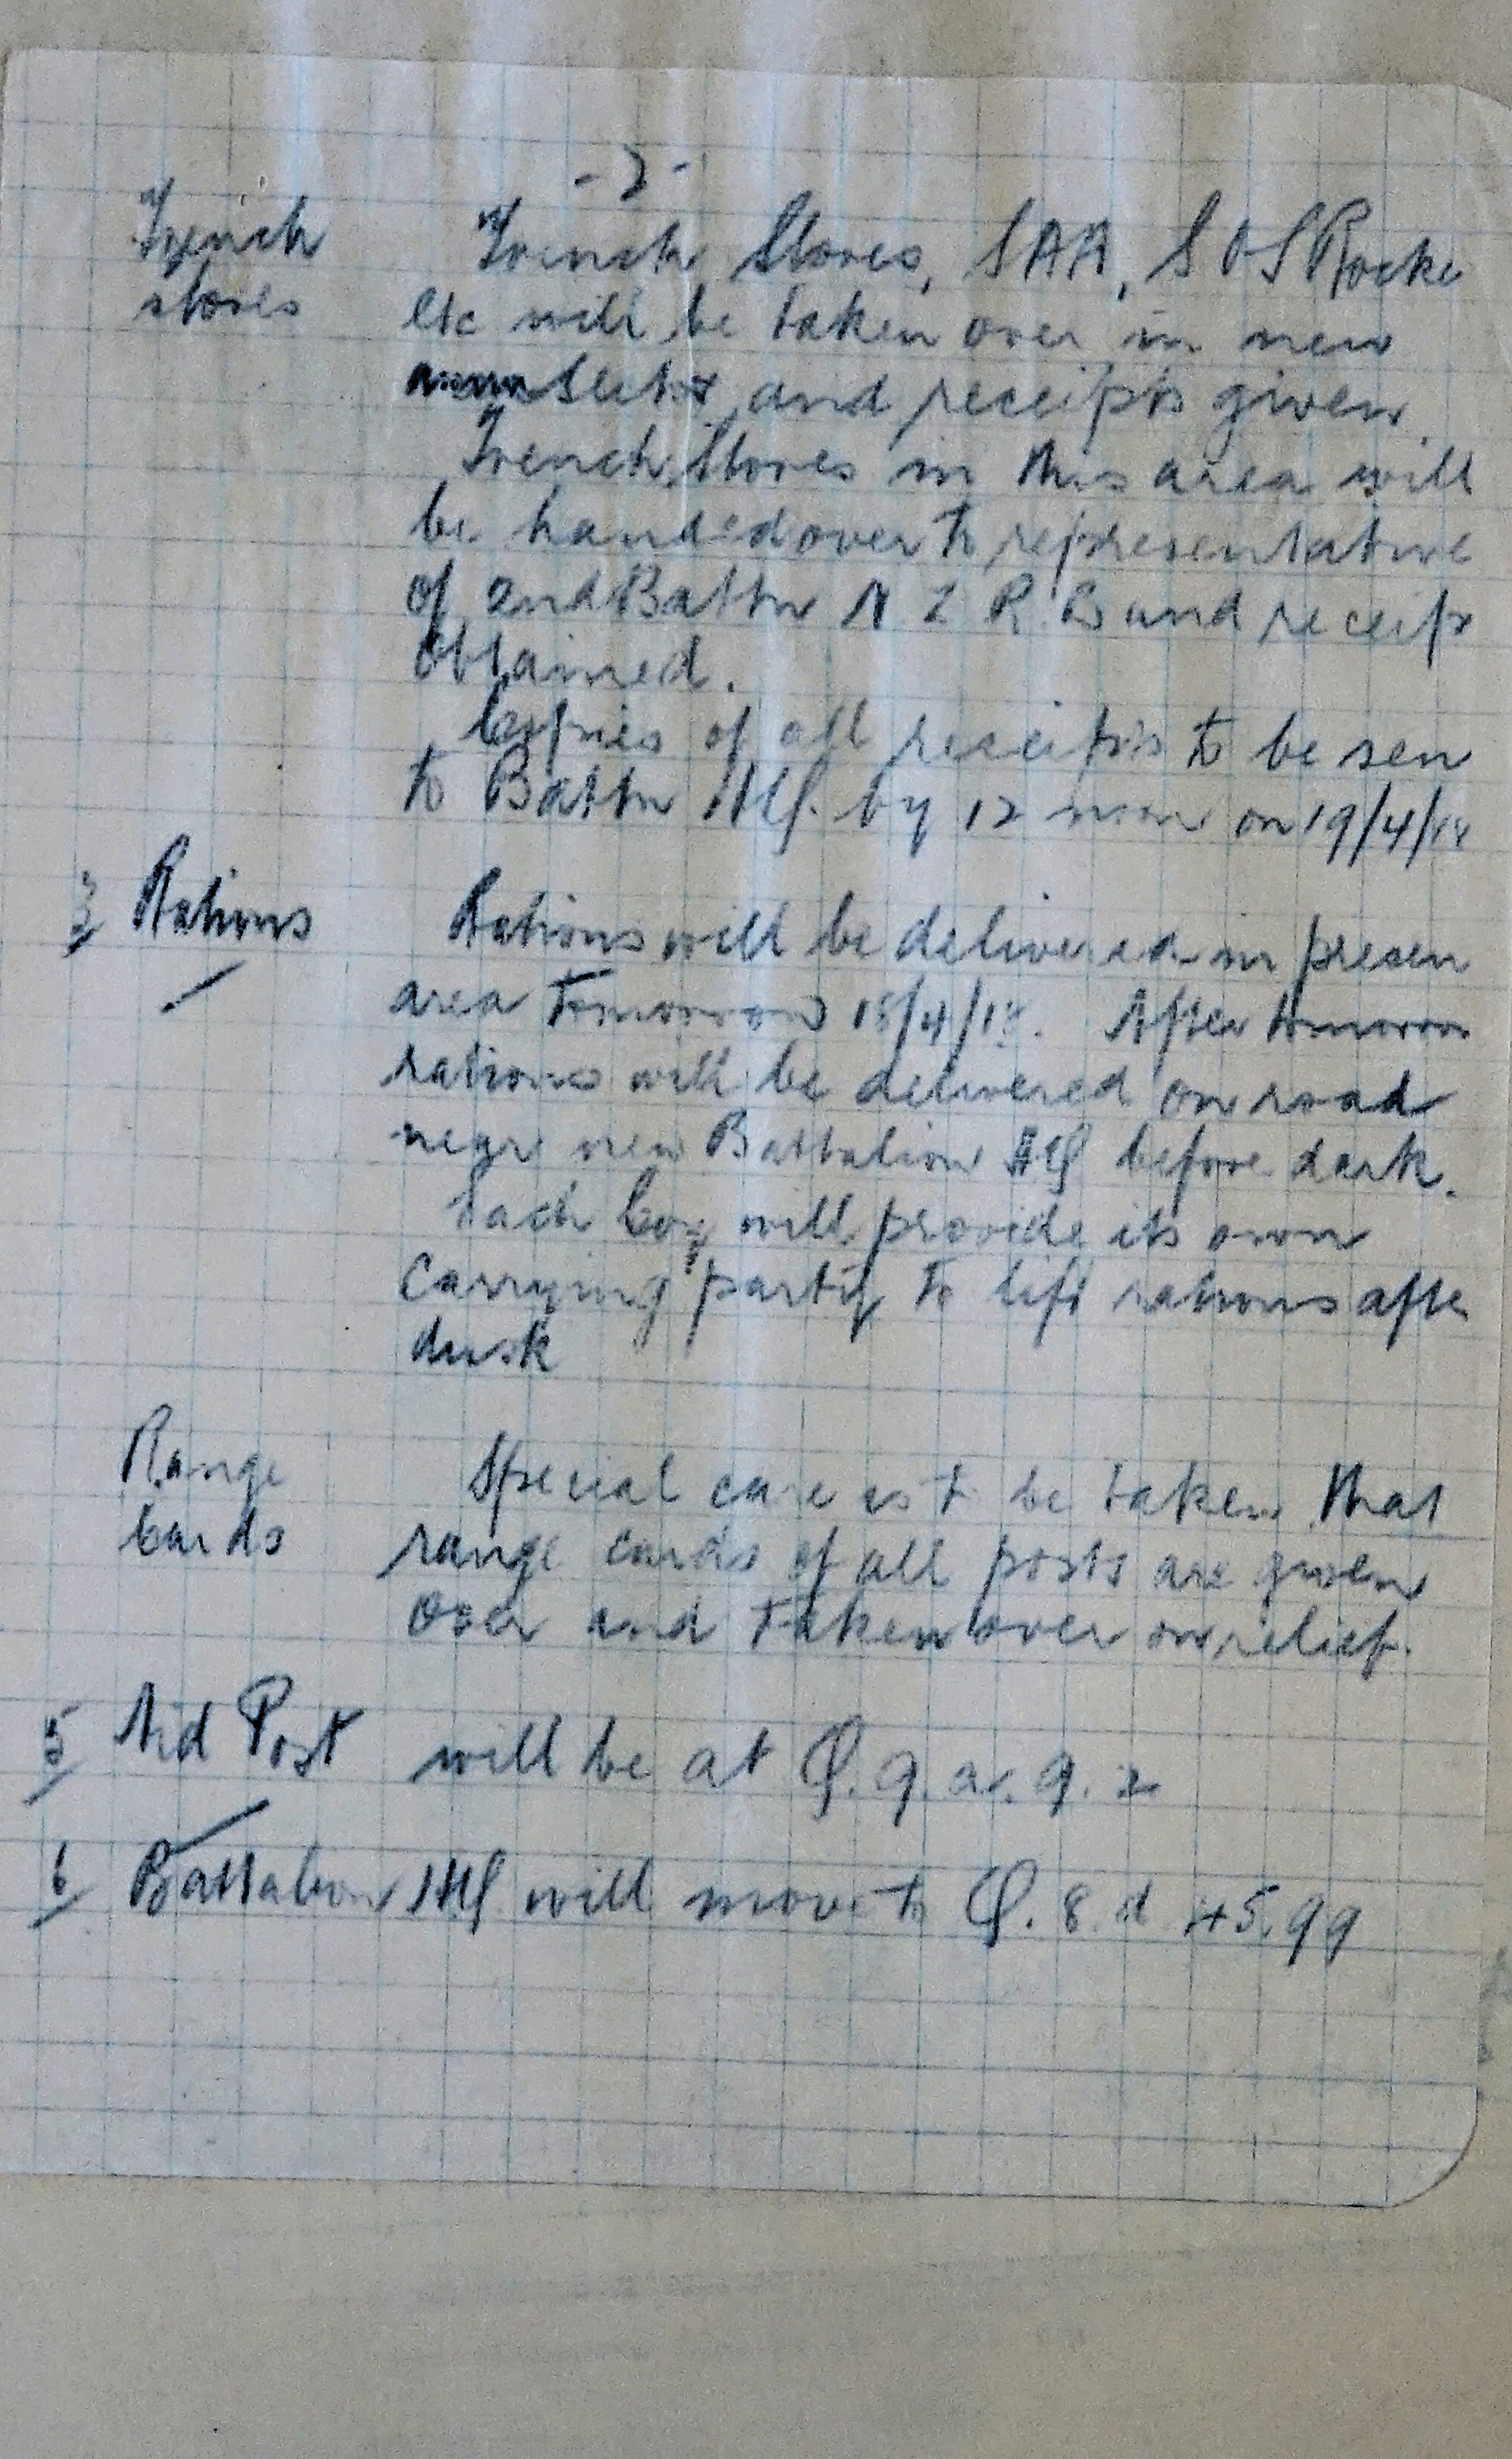 - 2 -
Trench Trench Stores, SAA, SOS Rocke
stores etc will be taken over in new
sector and receipts given.
Trench Stores in this area will
be handed over to representative
of 2nd Battn N Z R B and receipt
obtained.
Copies of all receipts to be sen
to Battn HQ. by 12 noon on 19/4/18
3 Rations Rations will be delivered in presen
area tomorrow 18/4/18. After tomorrow
rations will be delivered on road
near new Battalion HQ before dark.
Each Coy will provide its own
carrying party to lift rations afte
dusk
Range Special care is to be taken that
Cards range cards of all posts are given
over and taken over on relief.
5 Aid Post will be at Q. 9. a. 9. 2
6 Battalion HQ will move to Q. 8. d 45.99